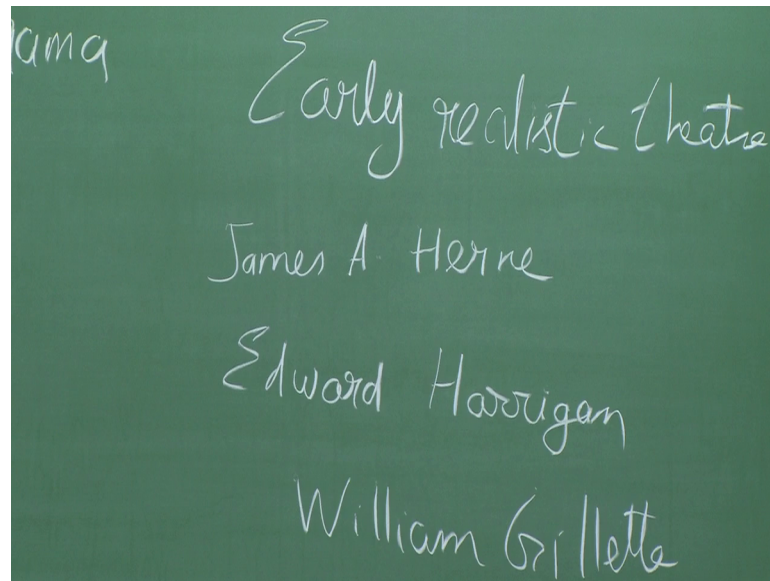 Early realistic theatre
James A. Herne
Edward Harrigan
William Gillette